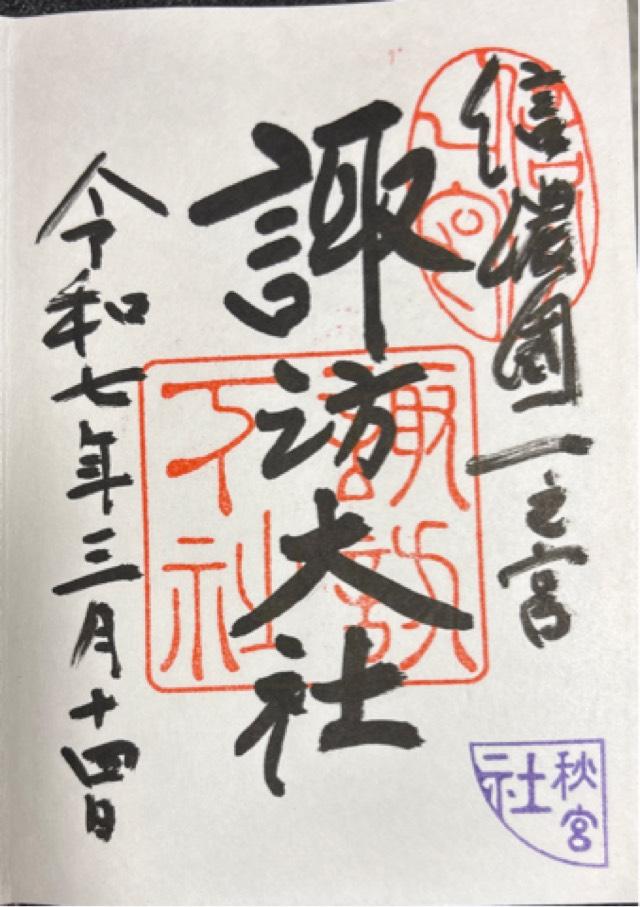 信濃國一之宮
諏訪大社
諏訪
下社
令和七年三月十四日
秋宮
社